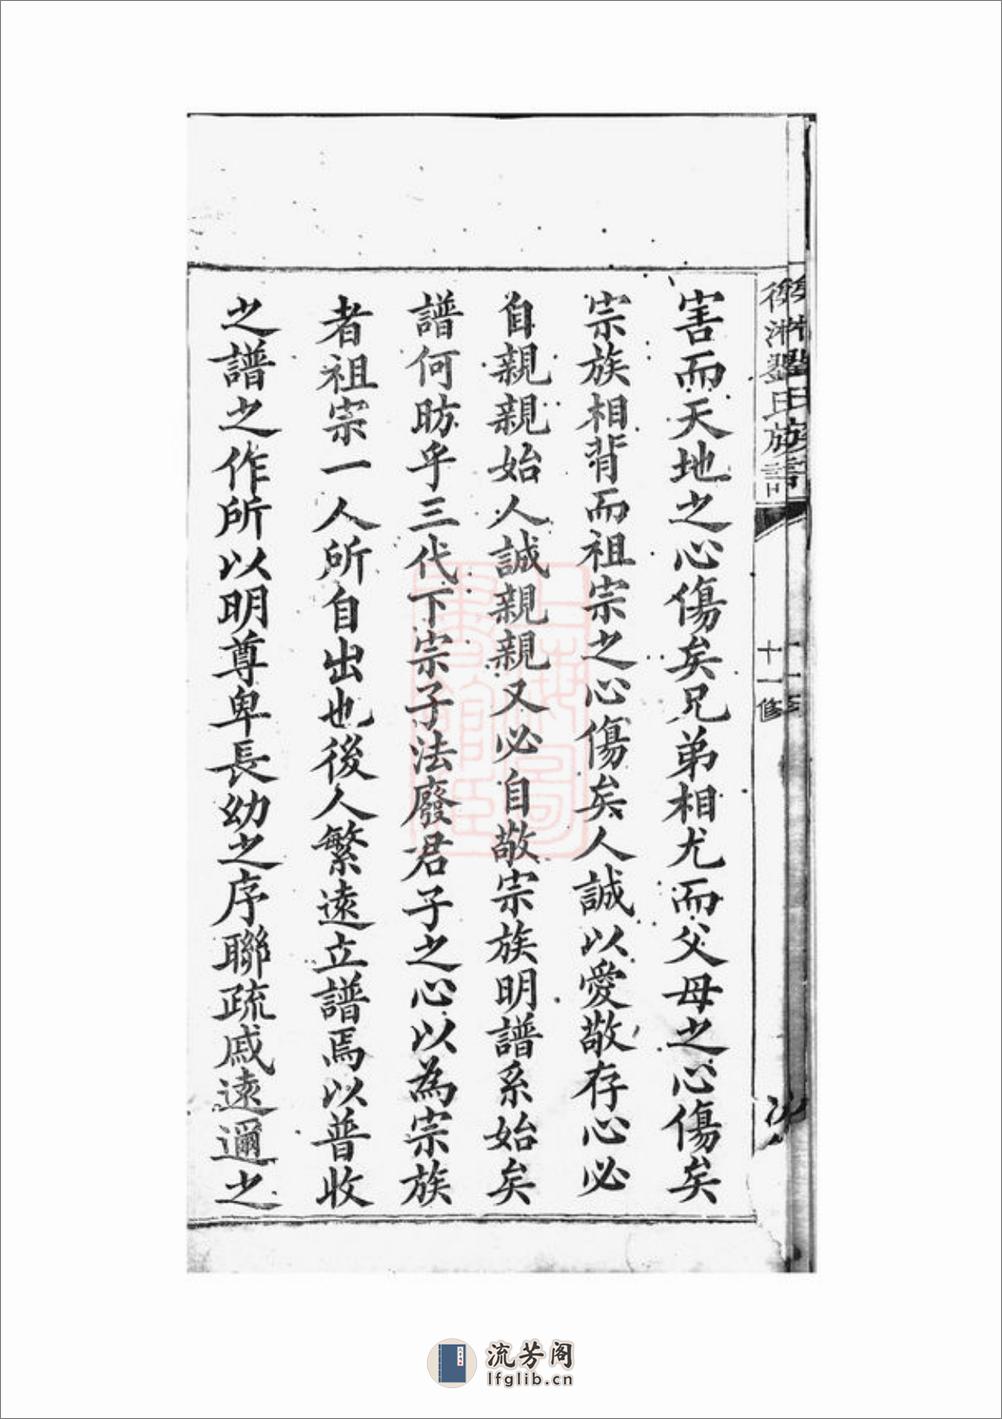 害而天地之心傷矣兄弟相尤而父母之心傷矣
宗族相背而祖宗之心傷矣人誠以愛敬存心必
自親親始人誠親親又必自敬宗族明譜系始矣
譜何昉乎三代下宗子法廢君子之心以為宗族
者祖宗一人所自出也後人繁遠立譜焉以普收
之譜之作所以明尊卑長幼之序聯疏戚遠邇之
氏族譜
十一修
流芳阁
lfglib.cn